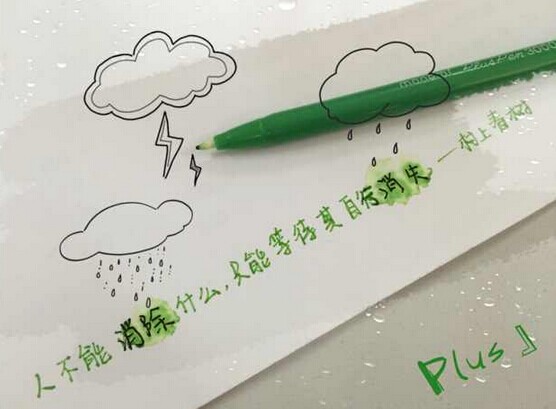 人不能消除什么,只能等待其自行消失 —村上春树
monami Plus Pen 3000
Plus』